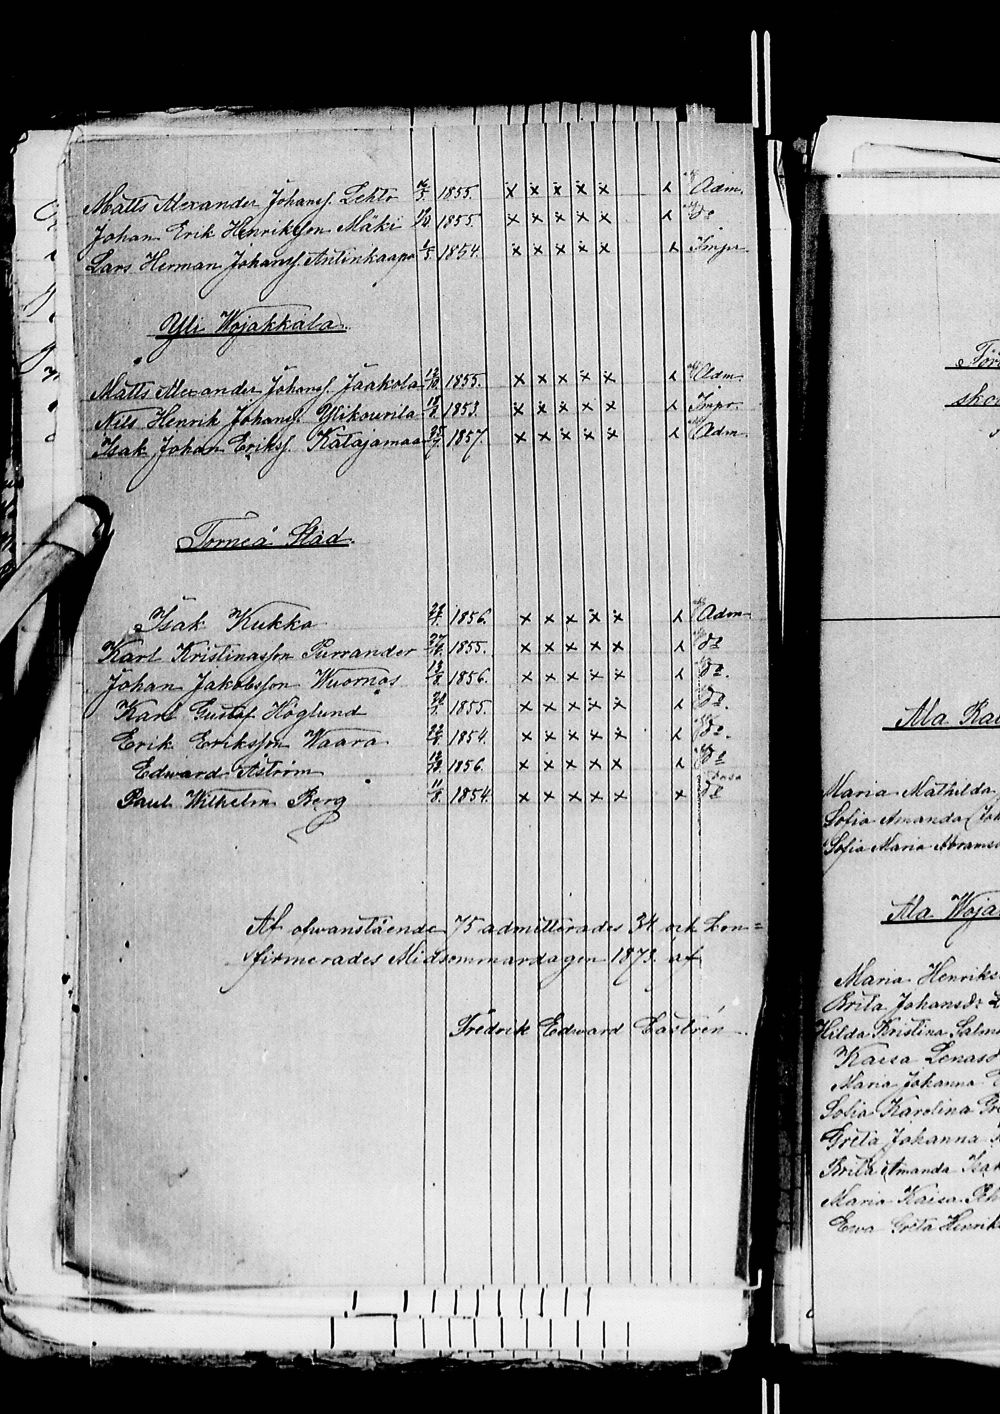 Matts Alexander Johanss. Lehto 1855. x x x x x Adm.
Johan Erik Henriksson Mäki 1855. x x x x x do
Lars Herman Johanss. Antinkaapo 1/5 1854. x x x x x Impr
Yli Wojakkala
Matts Alexander Johanss. Jaakola 1855. x x x x x Adm
Nils Henrik Johanss. Ylikourila 1853. x x x x x Impr.
Isak Johan Erikss. Katajamaa 1857. x x x x x Adm
Torneå Stad.
Isak Kukko 1856. x x x x x Adm
Karl Kristinasson Purrander 1855. x x x x x do
Johan Jakobsson Wuornos 1856. x x x x x do.
Karl Gustaf Höglund 1855. x x x x x do.
Erik Eriksson Waara 1854. x x x x x do.
Edward Åström 1856. x x x x x do
Paul Wilhelm Berg 11/8 1854. x x x x x x do
Af ofvanstående 75 admitterades 34 och Con=
firmerades Midsommardagen 1873. af
Fredrik Edward Castrén
Ala
Maria Mathilda
Sofia Amanda Joh
Sofia Maria Abrams
Ala Woja
Maria Henriks
Brita Johansdr
Hilda Kristina
Kaisa Lenasd
Maria Johanna
Sofia Karolina
Greta Johanna
Brita Amanda Isak
Maria Kaisa
Ewa Greta Henriks